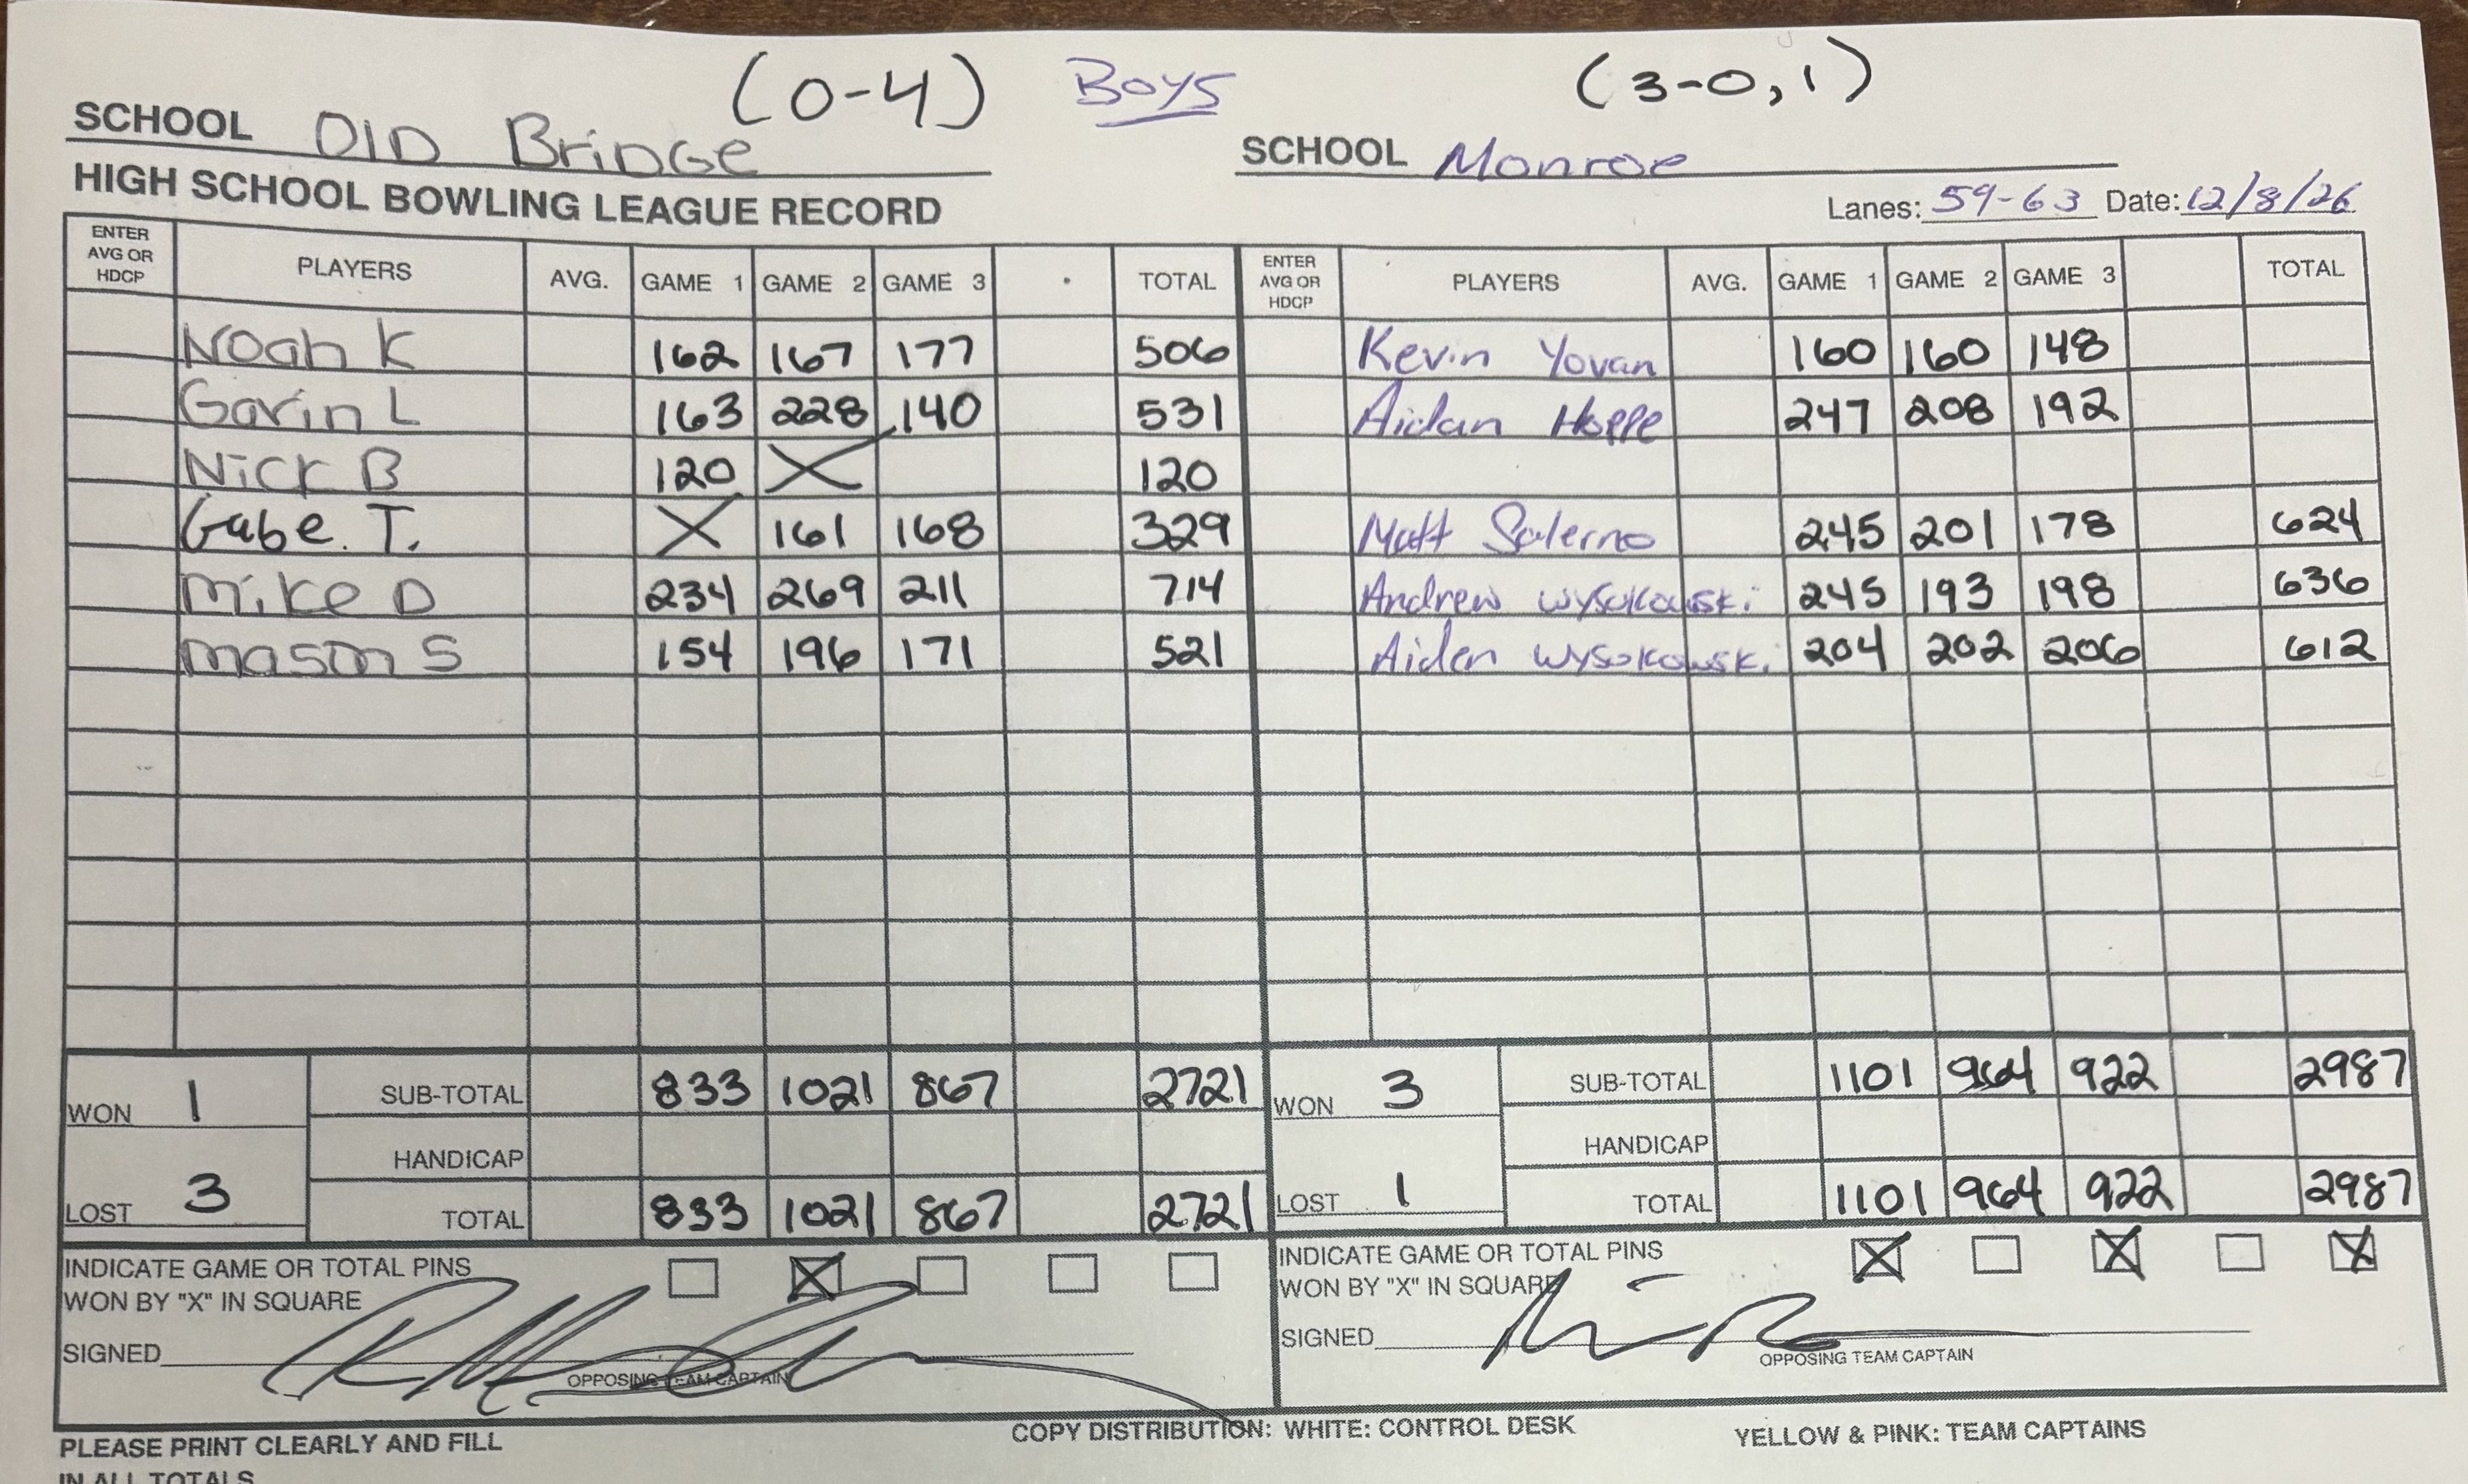 (0-4) Boys (3-0,1)
SCHOOL Old Bridge SCHOOL Monroe
HIGH SCHOOL BOWLING LEAGUE RECORD Lanes: 59-63 Date: 12/8/26
ENTER AVG OR HDCP PLAYERS AVG. GAME 1 GAME 2 GAME 3 TOTAL ENTER AVG OR HDCP PLAYERS AVG. GAME 1 GAME 2 GAME 3 TOTAL
Noah K 162 167 177 506 Kevin Yovan 160 160 148
Gavin L 163 228 140 531 Aidan Hoppe 247 208 192
Nick B 120 X 120
Gabe. T. X 161 168 329 Matt Salerno 245 201 178 624
Mike D 234 269 211 714 Andrew Wysokowski 245 193 198 636
Mason S 154 196 171 521 Aiden Wysokowski 204 202 206 612
WON 1 SUB-TOTAL 833 1021 867 2721 WON 3 SUB-TOTAL 1101 964 922 2987
HANDICAP HANDICAP
LOST 3 TOTAL 833 1021 867 2721 LOST 1 TOTAL 1101 964 922 2987
INDICATE GAME OR TOTAL PINS X INDICATE GAME OR TOTAL PINS X X X
WON BY "X" IN SQUARE WON BY "X" IN SQUARE
SIGNED SIGNED
OPPOSING TEAM CAPTAIN OPPOSING TEAM CAPTAIN
PLEASE PRINT CLEARLY AND FILL COPY DISTRIBUTION: WHITE: CONTROL DESK YELLOW & PINK: TEAM CAPTAINS
IN ALL TOTALS